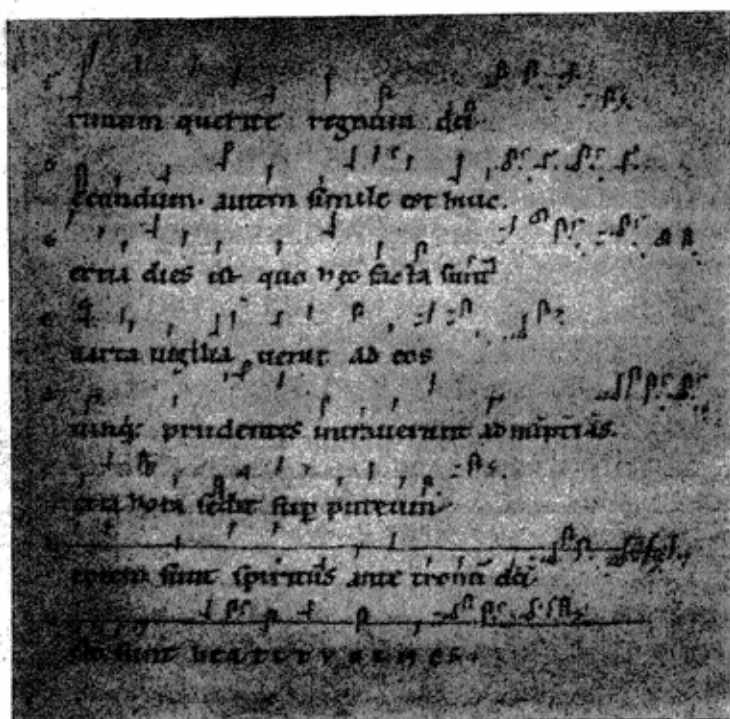 rimum querite regnum dei
ecundum autem simile est huic.
ertia dies est quo hec facta sunt
uarta uigilia uenit ad eos
uinq; prudentes intrauerunt ad nuptias.
exta hora sedit sup puteum
eptem sunt spiritus ante tronu dei
cto sunt beatitudines